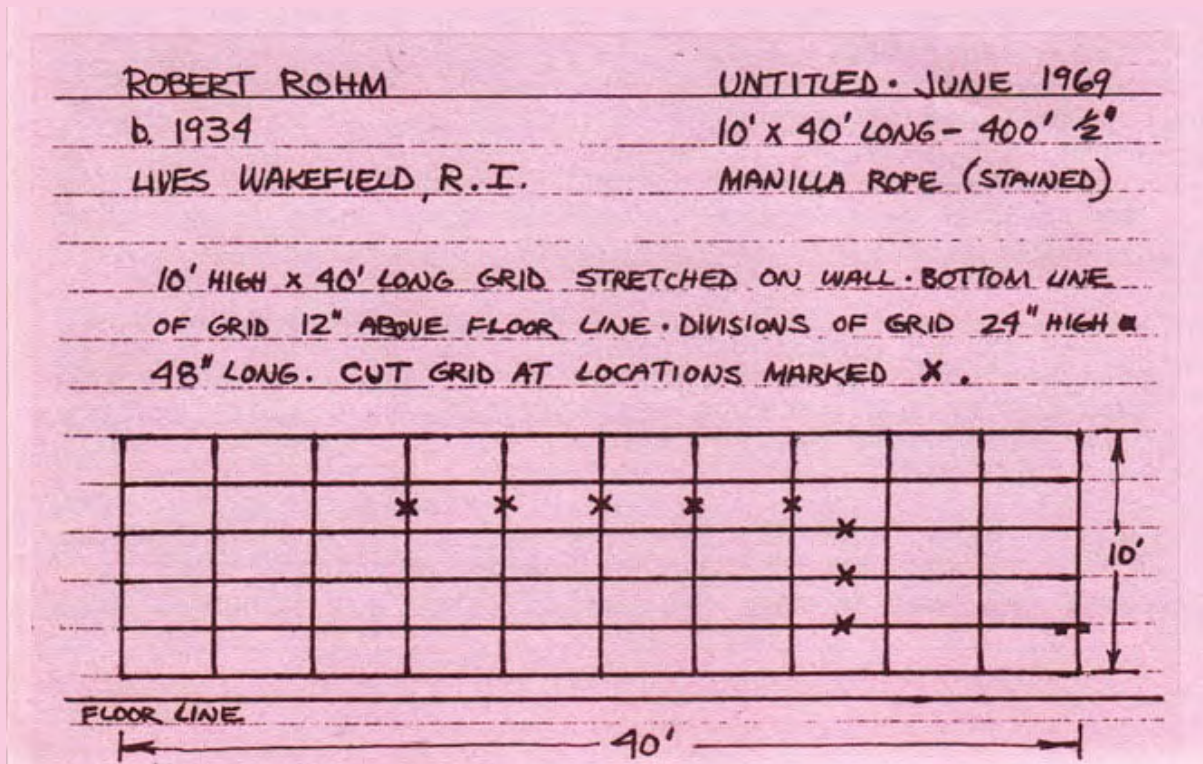 ROBERT ROHM
b. 1934
LIVES WAKEFIELD, R.I.
UNTITLED. JUNE 1969
10' X 40' LONG - 400' 1/2"
MANILLA ROPE (STAINED)
10' HIGH X 40' LONG GRID STRETCHED ON WALL. BOTTOM LINE
OF GRID 12" ABOVE FLOOR LINE. DIVISIONS OF GRID 24" HIGH
48" LONG. CUT GRID AT LOCATIONS MARKED X.
X X X X X
X
X
X
10'
FLOOR LINE
40'